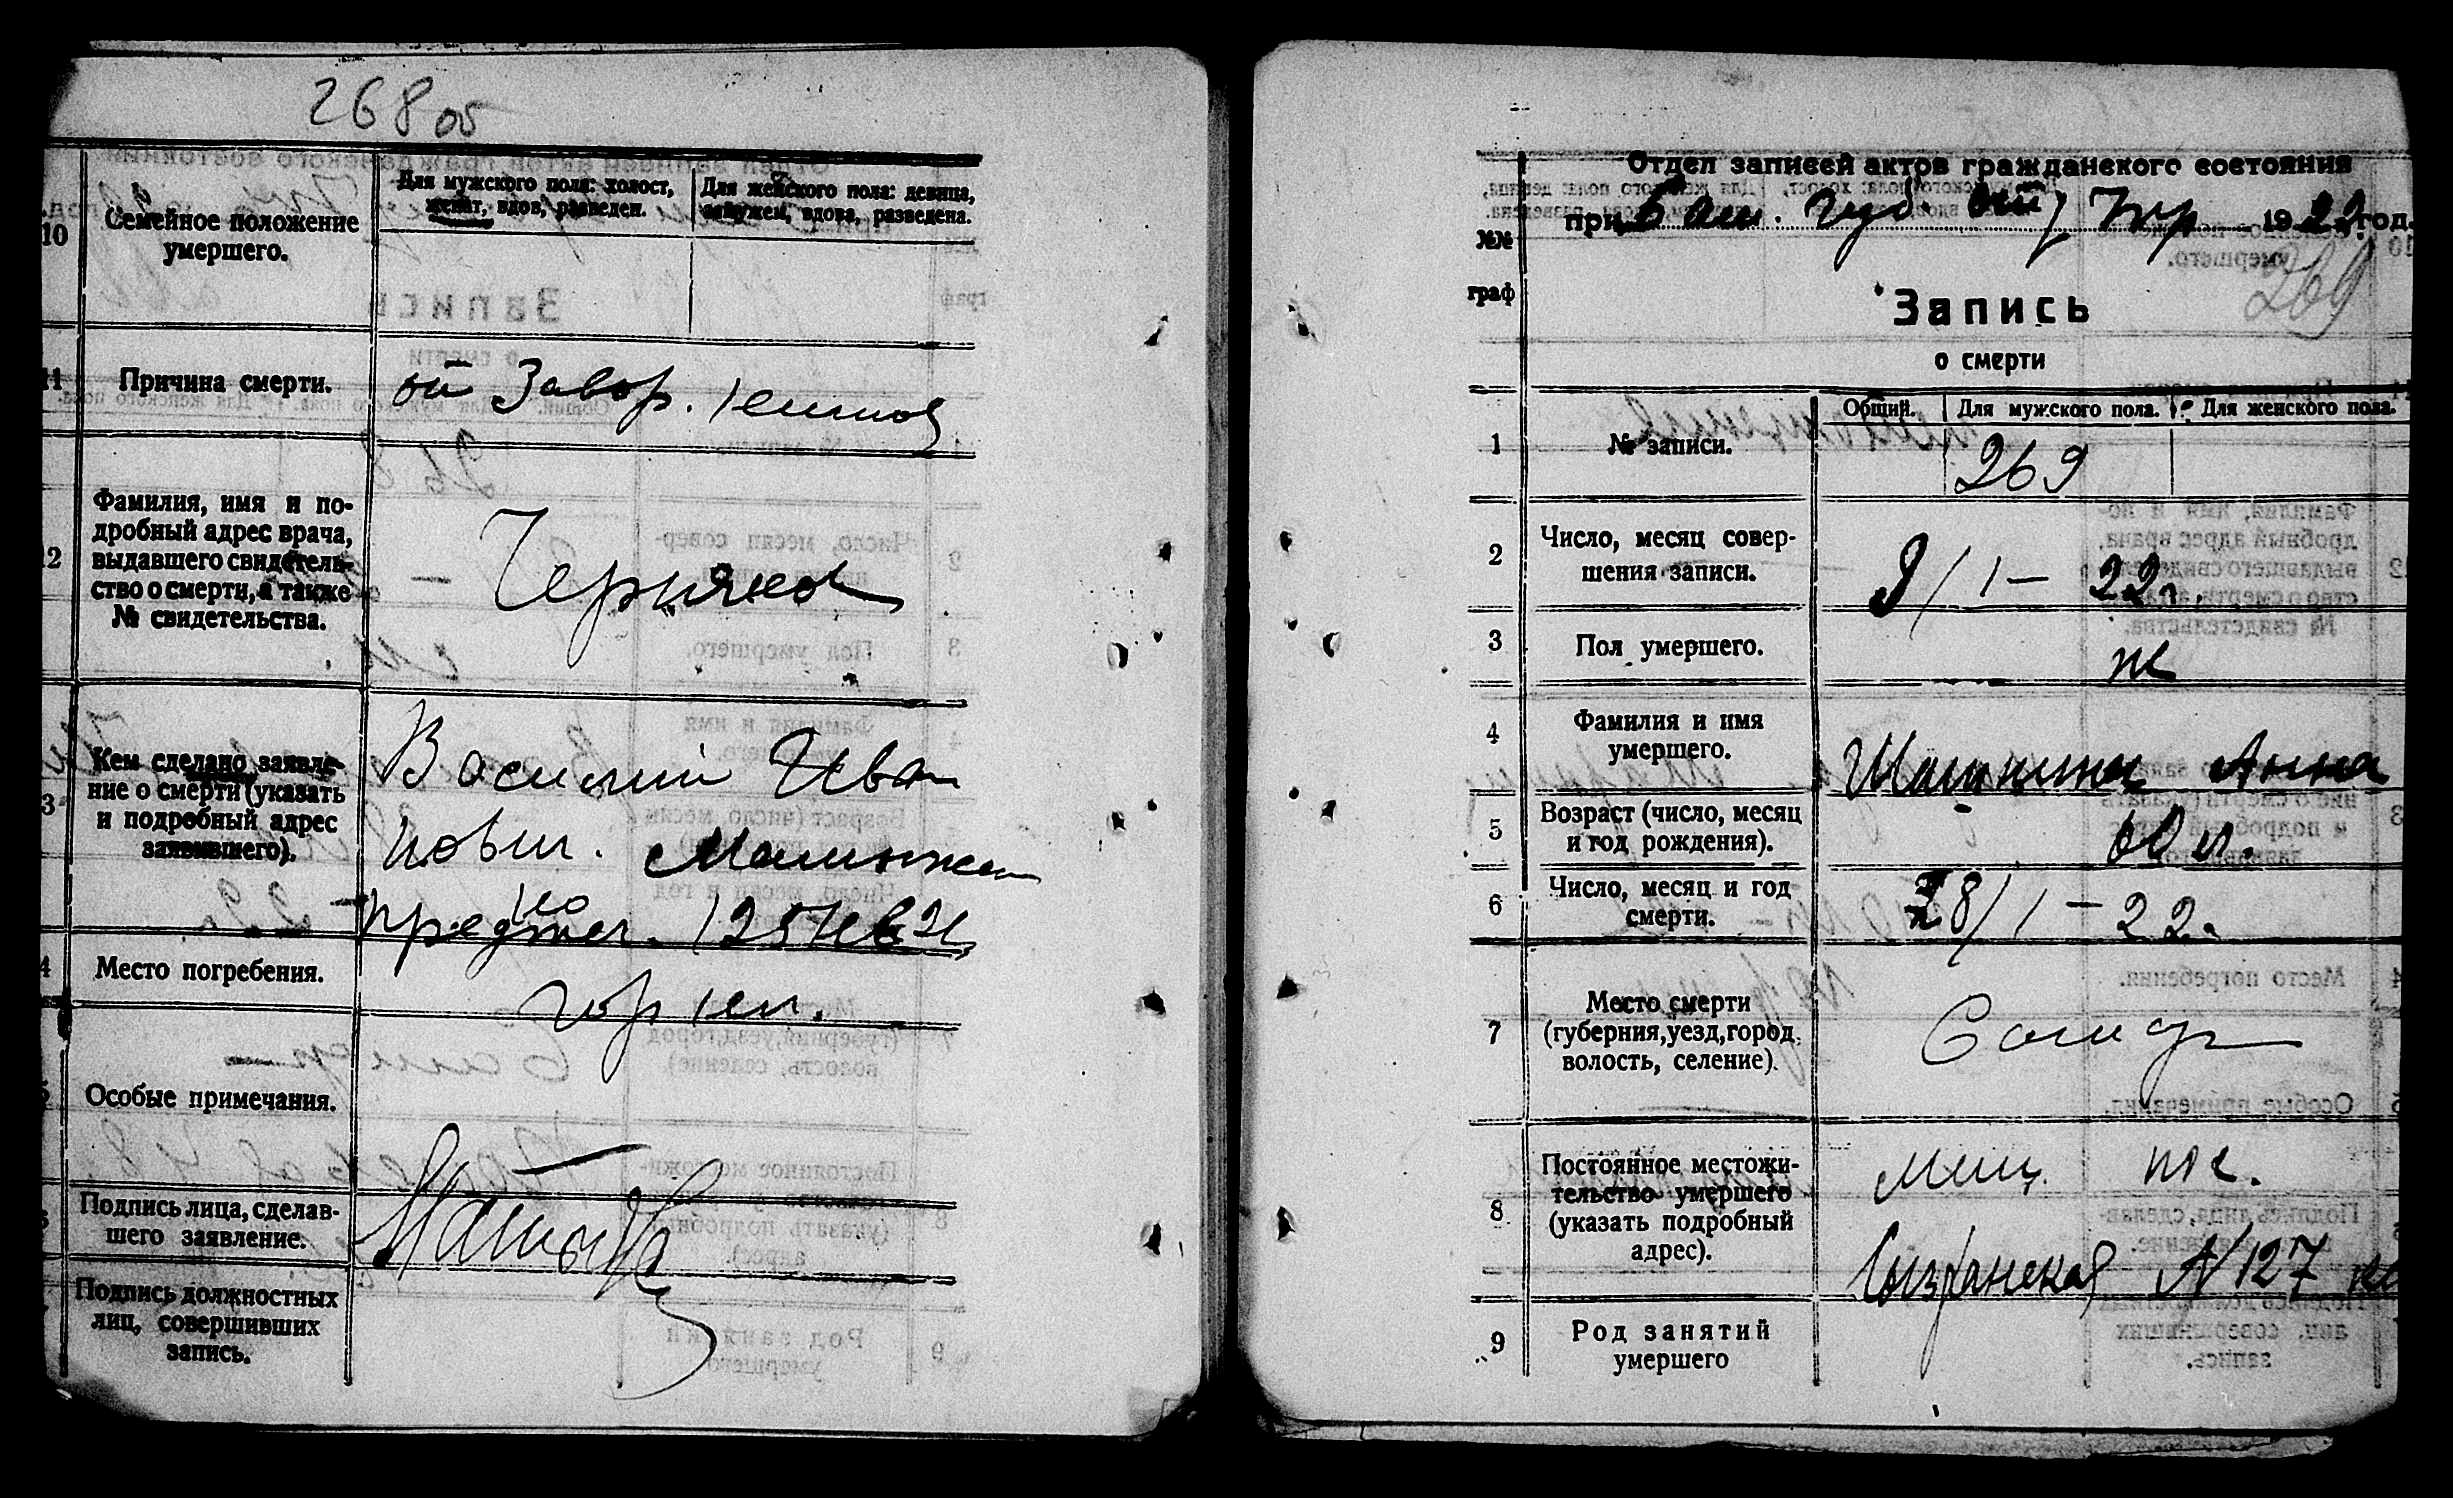 268 об
10
Семейное положение
умершего.
Для мужского пола: холост,
женат, вдов, разведен.
Для женского пола: девица,
замужем, вдова, разведена.
11
Причина смерти.
от Завор. кишок
12
Фамилия, имя и по-
дробный адрес врача,
выдавшего свидетель-
ство о смерти, а также
№ свидетельства.
Черняков
3
Кем сделано заявле-
ние о смерти (указать
и подробный адрес
заявившего).
Василий Иван
нович.
4
Место погребения.
гор кл.
5
Особые примечания.
—
Подпись лица, сделав-
шего заявление.
Подпись должностных
лиц, совершивших
запись.
Отдел записей актов гражданского состояния
при Сам. Губ. 1922 год.
269
№№
граф
Запись
о смерти
Общий.
Для мужского пола.
Для женского пола.
1
№ записи.
269
2
Число, месяц совер-
шения записи.
9/1— 22г.
3
Пол умершего.
ж
4
Фамилия и имя
умершего.
Анна
5
Возраст (число, месяц
и год рождения).
60 л.
6
Число, месяц и год
смерти.
8/1—22г.
7
Место смерти
(губерния, уезд, город,
волость, селение).
Самар
8
Постоянное местожи-
тельство умершего
(указать подробный
адрес).
Сызранская N 127 кв
9
Род занятий
умершего